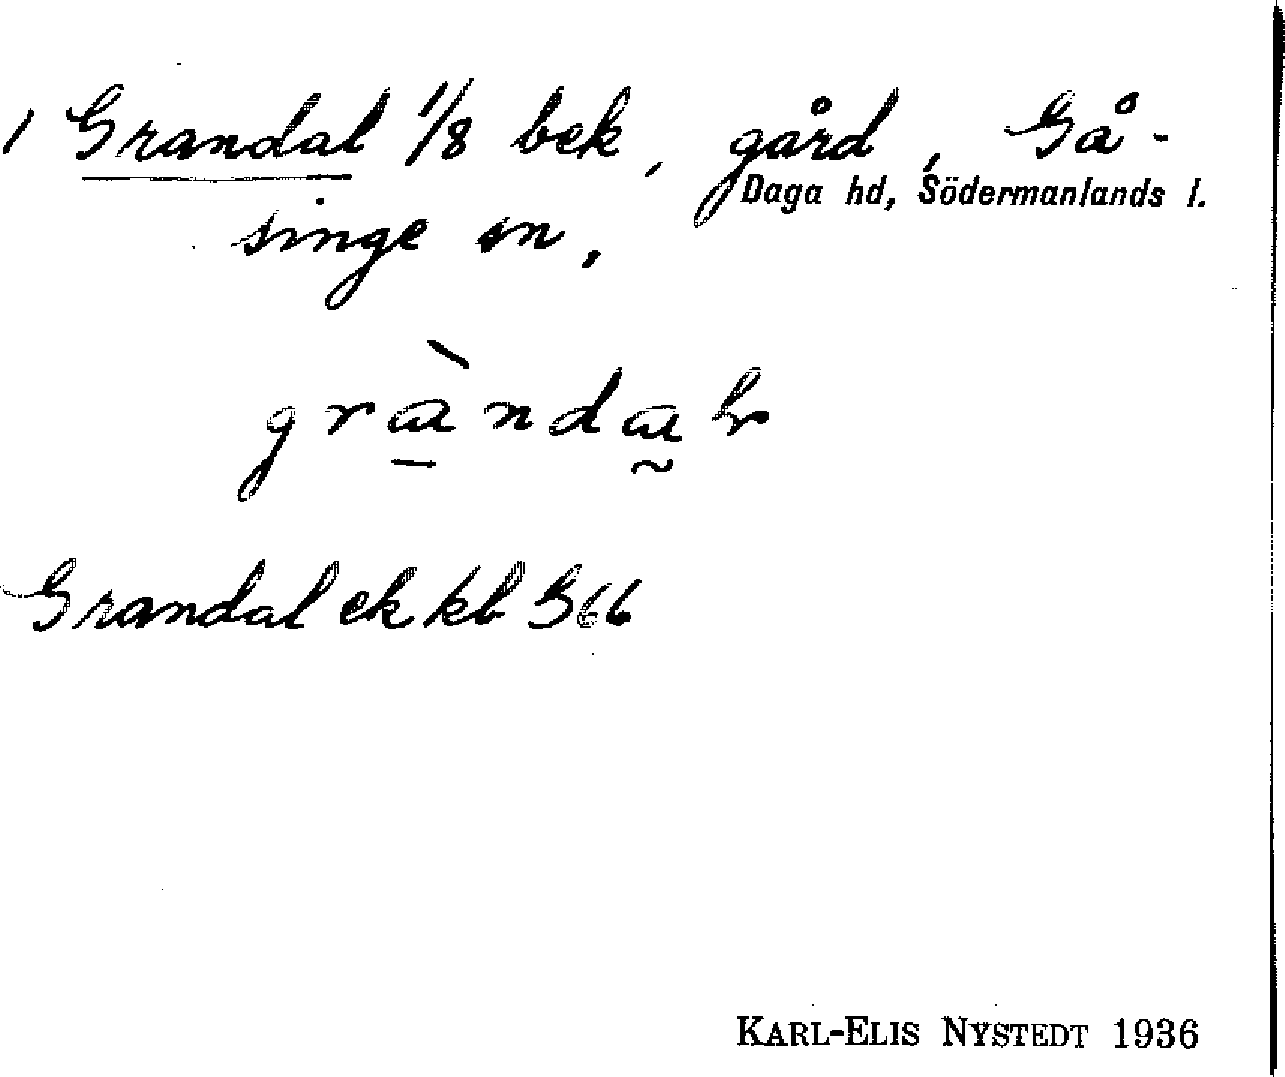 1 Grandal 1/8 bek, gård, Gå-
Daga hd, Södermanlands l.
singe sn,
gràndaɫ
Grandal ek kb 366
KARL-ELIS NYSTEDT 1936